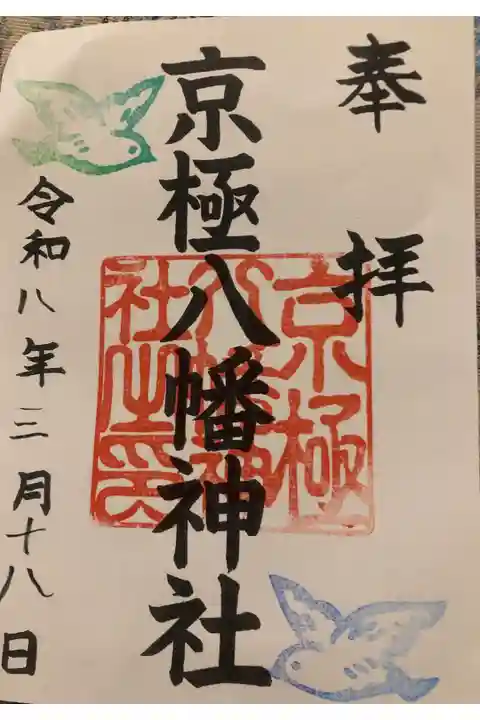 奉拝
京極八幡神社
京極
八幡神
社之印
令和八年三月十八日